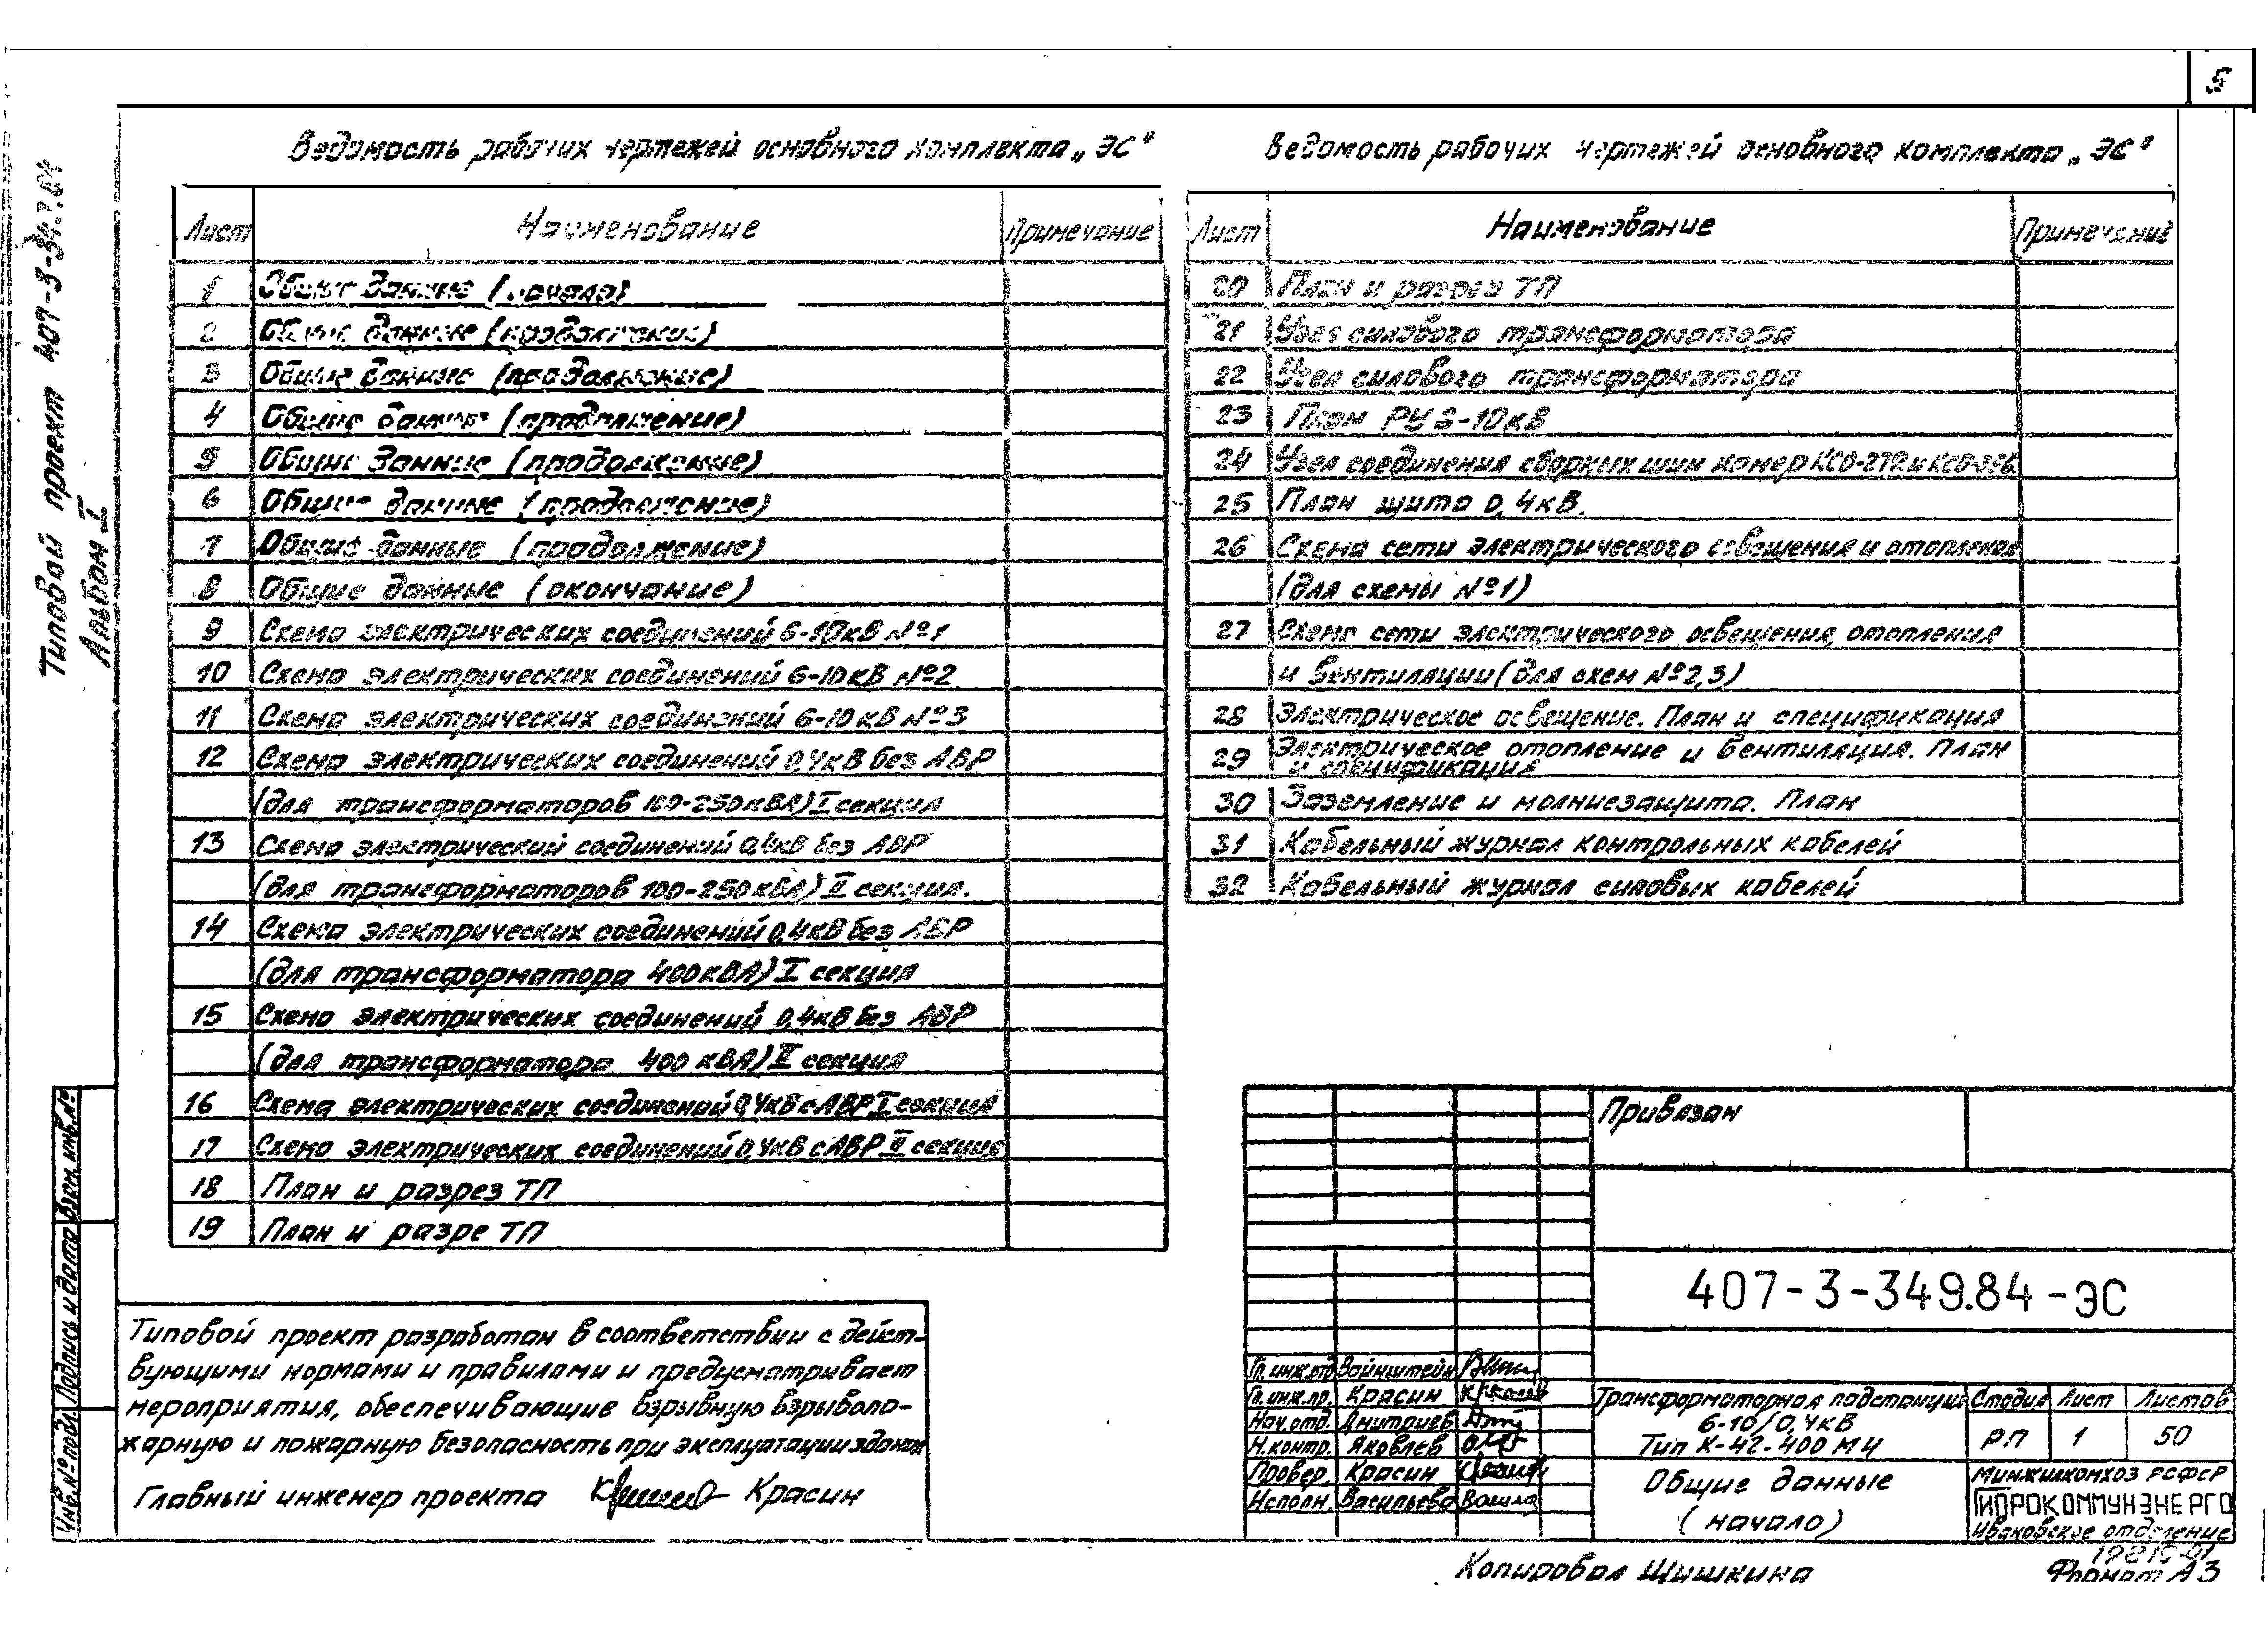 5
Типовой проект 407-3-349.84
Альбом I
Ведомость рабочих чертежей основного комплекта „ЭС"
Лист Наименование Примечание
1 Общие данные (начало)
2 Общие данные (продолжение)
3 Общие данные (продолжение)
4 Общие данные (продолжение)
5 Общие данные (продолжение)
6 Общие данные (продолжение)
7 Общие данные (продолжение)
8 Общие данные (окончание)
9 Схема электрических соединений 6-10кВ №1
10 Схема электрических соединений 6-10кВ №2
11 Схема электрических соединений 6-10кВ №3
12 Схема электрических соединений 0,4кВ без АВР
(для трансформаторов 100-250кВА) I секция
13 Схема электрический соединений 0,4кВ без АВР
(для трансформаторов 100-250кВА) II секция.
14 Схема электрических соединений 0,4кВ без АВР
(для трансформатора 400кВА) I секция
15 Схема электрических соединений 0,4кВ без АВР
(для трансформатора 400 кВА) II секция
16 Схема электрических соединений 0,4кВ с АВР I секция
17 Схема электрических соединений 0,4кВ с АВР II секция
18 План и разрез ТП
19 План и разре ТП
Ведомость рабочих чертежей основного комплекта „ЭС"
Лист Наименование Примечание
20 План и разрез ТП
21 Узел силового трансформатора
22 Узел силового трансформатора
23 План РУ 6-10кВ
24 Узел соединения сборных шин камер КСО-272 и
25 План щита 0,4кВ.
26 Схема сети электрического освещения и отопления
(для схемы №1)
27 Схема сети электрического освещения, отопления
и вентиляции (для схем №2,3)
28 Электрическое освещение. План и спецификация
29 Электрическое отопление и вентиляция. План
и спецификация
30 Заземление и молниезащита. План
31 Кабельный журнал контрольных кабелей
32 Кабельный журнал силовых кабелей
Типовой проект разработан в соответствии с дейст-
вующими нормами и правилами и предусматривает
мероприятия, обеспечивающие взрывную взрывопо-
жарную и пожарную безопасность при эксплуатации здания
Главный инженер проекта Красин
Инв.№ подл. Подпись и дата Взам. инв.№
Привязан
407-3-349.84-ЭС
Гл. инж. отд Вайнштейн
Гл. инж. пр. Красин
Нач. отд. Дмитриев
Н. контр. Яковлев
Провер. Красин
Исполн. Васильева
Трансформаторная подстанция
6-10/0,4кВ
Тип К-42-400 М4
Стадия Лист Листов
РП 1 50
Общие данные
(начало)
МИНЖИЛКОМХОЗ РСФСР
ГИПРОКОММУНЭНЕРГО
Ивановское отделение
Копировал Шишкина
Формат А3